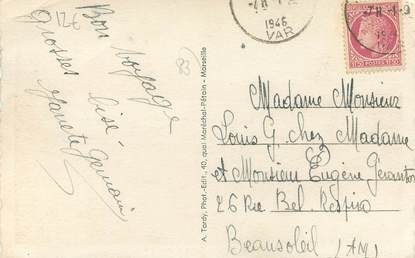 12€
Bon voyage
grosses bisé
Janete Germain
83
-7 H
1946
VAR
7 H
A. Tardy, Phot.-Edit., 40, quai Maréchal-Pétain - Marseille
Madame Monsieur
Louis G. chez Madame
et Monsieur Eugène Géranton
26 Rue Bel Respiro
Beausoleil (AM)